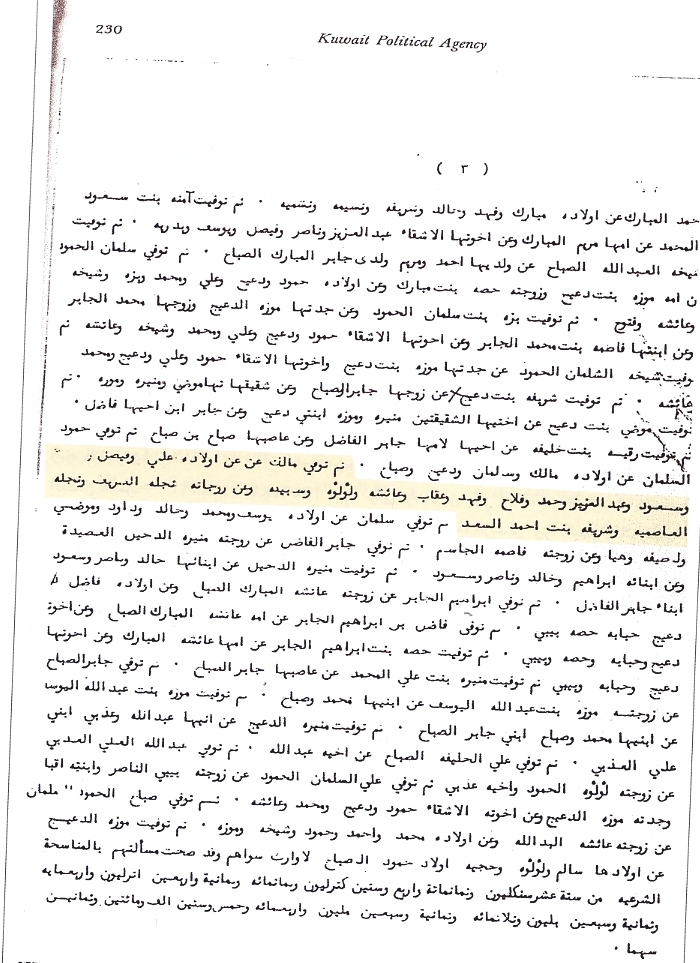 230
Kuwait Political Agency
( ٣ )
حمد المبارك عن اولاده مبارك وفهد وخالد وشريفه ونسيمه ونشميه ٠ ثم توفيت آمنه بنت سعود
المحمد عن امها مريم المبارك وعن اخوتها الاشقاء عبدالعزيز وناصر وفيصل ويوسف وبدريه ٠ ثم توفيت
شيخه العبدالله الصباح عن ولديها احمد ومريم ولدى جابر المبارك الصباح ٠ ثم توفي سلمان الحمود
ن امه موزه بنت دعيج وزوجته حصه بنت مبارك وعن اولاده حمود ودعيج وعلي ومحمد وبزه وشيخه
وعائشه وفتوح ٠ ثم توفيت بزه بنت سلمان الحمود وعن جدتها موزه الدعيج وزوجها محمد الجابر
وعن ابنتها فاطمه بنت محمد الجابر وعن اخوتها الاشقاء حمود ودعيج وعلي ومحمد وشيخه وعائشه ثم
توفيت شيخه السلمان الحمود عن جدتها موزه بنت دعيج واخوتها الاشقاء حمود وعلي ودعيج ومحمد
عائشه ٠ ثم توفيت شريفه بنت دعيج عن زوجها جابر الصباح وعن شقيقتها موضي ومنيره وموزه ٠ ثم
توفيت موضي بنت دعيج عن اختيها الشقيقتين منيره وموزه ابنتي دعيج وعن جابر ابن اخيها فاضل ٠
ثم توفيت رقيه بنت خليفه عن اخيها لامها جابر الفاضل وعن عاصبها صباح بن صباح ثم توفي حمود
السلمان عن اولاده مالك وسلمان ودعيج وصباح ٠ ثم توفي مالك عن عن اولاده علي وفيصل
وسعود وعبدالعزيز وحمد وفلاح وفهد وعقاب وعائشه ولؤلؤه وسبيته وعن زوجاته نجله الشريف ونجله
العاصميه وشريفه بنت احمد السعد ثم توفي سلمان عن اولاده يوسف ومحمد وخالد وداود وموضي
ولطيفه وهيا وعن زوجته فاطمه الجاسم ٠ ثم توفي جابر الفاضل عن زوجته منيره الدخيل العصيدة
وعن ابنائه ابراهيم وخالد وناصر وسعود ٠ ثم توفيت منيره الدخيل عن ابنائها خالد وناصر وسعود
ابناء جابر الفاضل ٠ ثم توفي ابراهيم الجابر عن زوجته عائشه المبارك الصباح وعن اولاده فاضل
دعيج حبابه حصه بيبي ٠ ثم توفى فاضل بن ابراهيم الجابر عن امه عائشه المبارك الصباح وعن اخوته
دعيج وحبابه وحصه وبيبي ٠ ثم توفيت حصه بنت ابراهيم الجابر عن امها عائشه المبارك وعن اخوتها
دعيج وحبابه وبيبي ثم توفيت منيره بنت علي المحمد عن عاصبها جابر الصباح ٠ ثم توفي جابر الصباح
عن زوجته موزه بنت عبدالله اليوسف عن ابنيها محمد وصباح ٠ ثم توفيت موزه بنت عبدالله اليوس
عن ابنيها محمد وصباح ابني جابر الصباح ٠ ثم توفيت منيره الدعيج عن ابنيها عبدالله وعذبي ابني
علي العذبي ٠ ثم توفي علي الخليفه الصباح عن اخيه عبدالله ٠ ثم توفي عبدالله العلي العذبي
عن زوجته لؤلؤه الحمود واخيه عذبي ثم توفي علي السلمان الحمود عن زوجته بيبي الناصر وابنته اقبا
وجدته موزه الدعيج وعن اخوته الاشقاء حمود ودعيج ومحمد وعائشه ٠ ثم توفي صباح الحمود السلمان
عن زوجته عائشه العبدالله وعن اولاده محمد واحمد وحمود وشيخه وموزه ٠ ثم توفيت موزه الدعيج
عن اولادها سالم ولؤلؤه وحجيه اولاد حمود الصباح لا وارث سواهم وقد صحت مسألتهم بالمناسخة
الشرعيه من ستة عشر سنكليون وثمانمائة واربع وستين كترليون وثمانمائه وثمانية واربعين اتريليون واربعمايه
وثمانية وسبعين بليون وثلاثمائه وثمانية وسبعين مليون واربعمائه وخمس وستين الف ومائتين وثمانين
سهما ٠